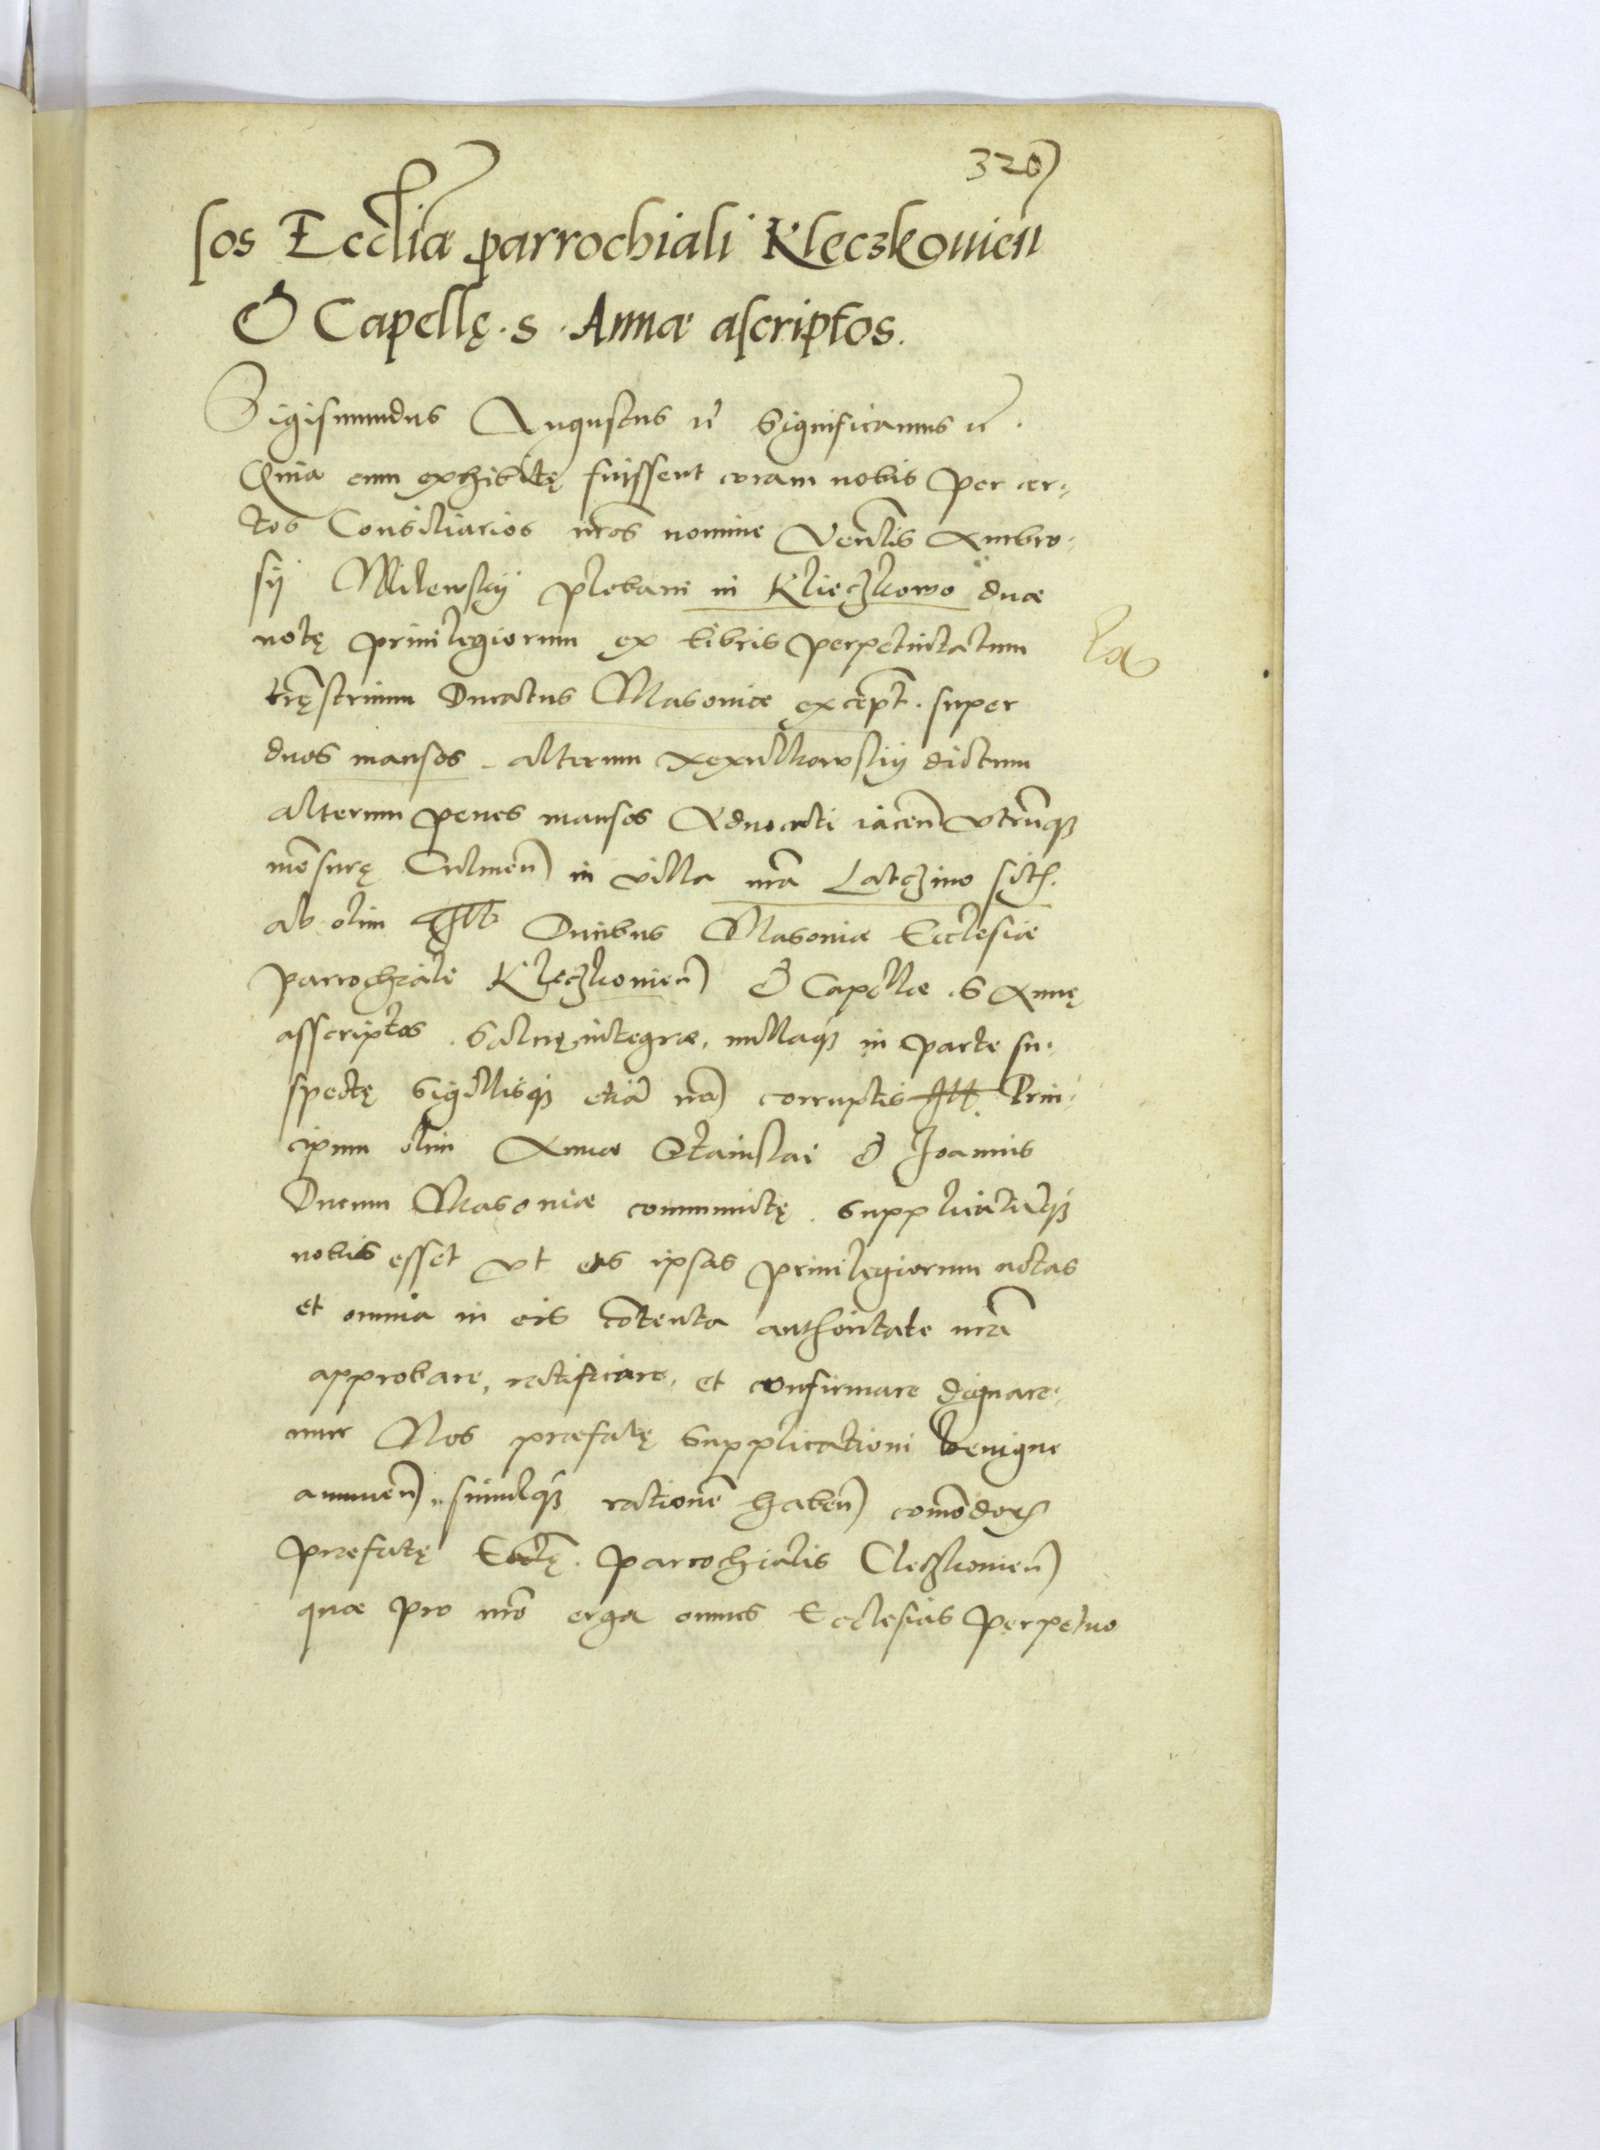 320
sos Eccl̄iæ parrochiali Kleczkouien̄
& Capellę · s · Annæ ascriptos.
Sigismundus Augustus &c̄ Significamus &c̄.
Quia cum exhibitę fuissent coram nobis per cer-
tos Consiliarios nr̄os nomine Ven̄lis Ambro-
sij Milewskij plebani in Klieczkowo duæ
notę priuilegiorum ex libris perpetuitatum
terrestrium Ducatus Masouiæ except̄. super
duos mansos. alterum dictum
alterum penes mansos Aduocati iacen̄ vtrumq3
mēsurę Culmen̄ in villa nr̄a Latczino sit.
ab olim Ill. Ducibus Masouiæ Ecclesiæ
parrochiali Kleczkouien̄ & Capellæ . S Annę
asscriptos. Saluę integræ, nullaq3 in parte su-
spectę Sigillisq3 etiā nō corruptis Ill. Prin-
cipum olim Annæ Stanislai & Joannis
Ducum Masouiæ communitę. Supplicatūq3
nobis esset vt eas ipsas priuilegiorum notas
et omnia in eis cōtenta authoritate nr̄a
approbare, ratificare, et confirmare dignare-
mur Nos præfatę Supplicationi benigne
annuen̄, simulq3 rationē haben̄ comōdor
præfatę Ecclīę parrochialis Cleczkouien̄
quæ pro nr̄o erga omnes Ecclesias perpetuo